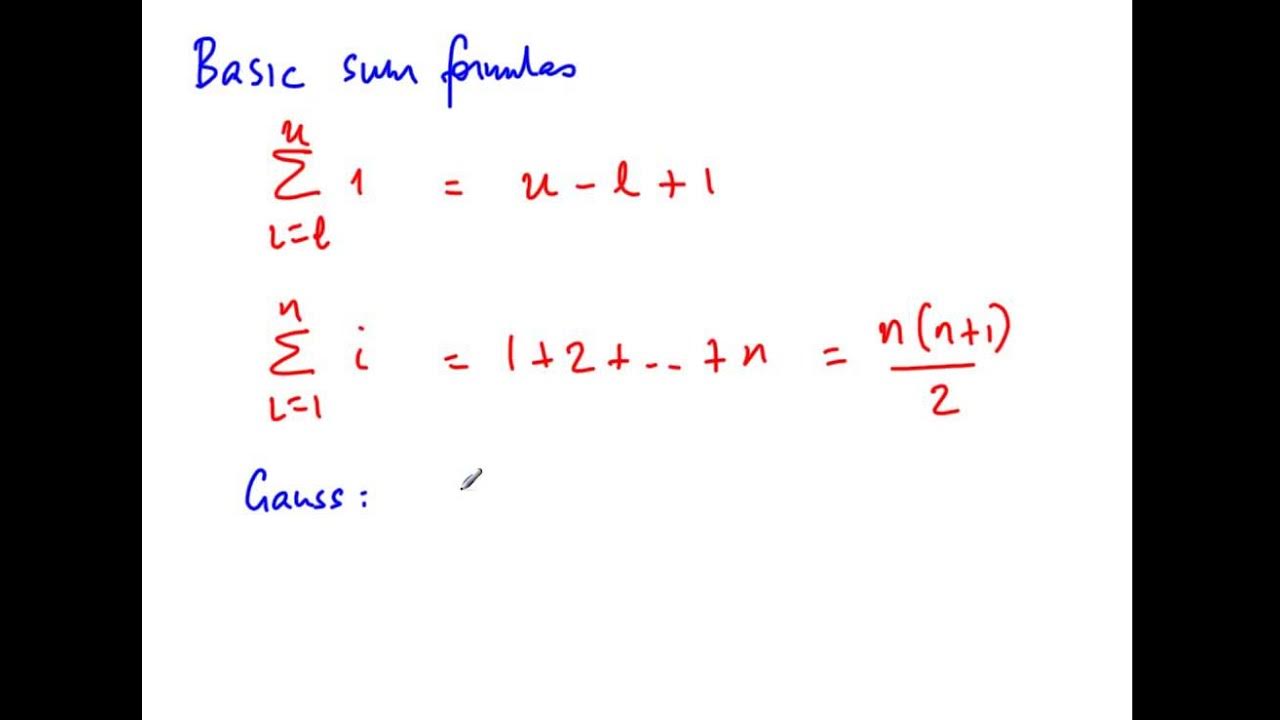 Basic sum formulas
u
∑ 1 = u - l + 1
i=l
n
∑ i = 1 + 2 + .. + n = n(n+1)/2
i=1
Gauss: